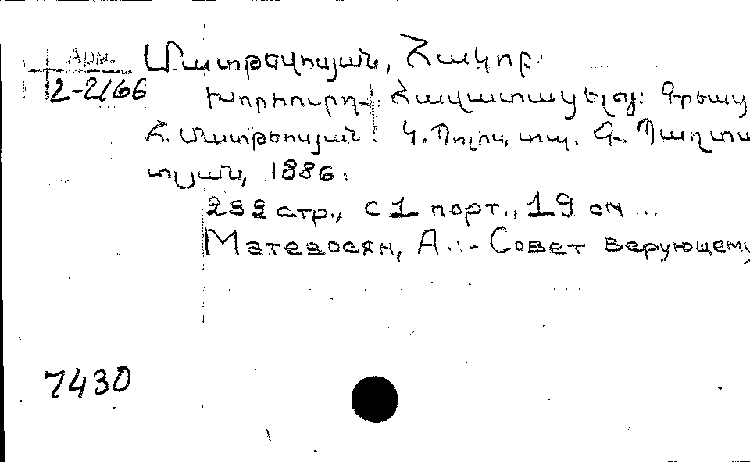 Арм.
2-2166
Մատթէոսյան, Հակոբ.
Խորհուրդ հաւատացելոց: Գրեաց
Հ. Մատթէոսյան: Կ. Պոլիս, տպ. Գ. Պաղտա
տլյան, 1886:
232 стр., с 1 порт., 19 см ...
Матевосян, А.:- Совет верующему
7430